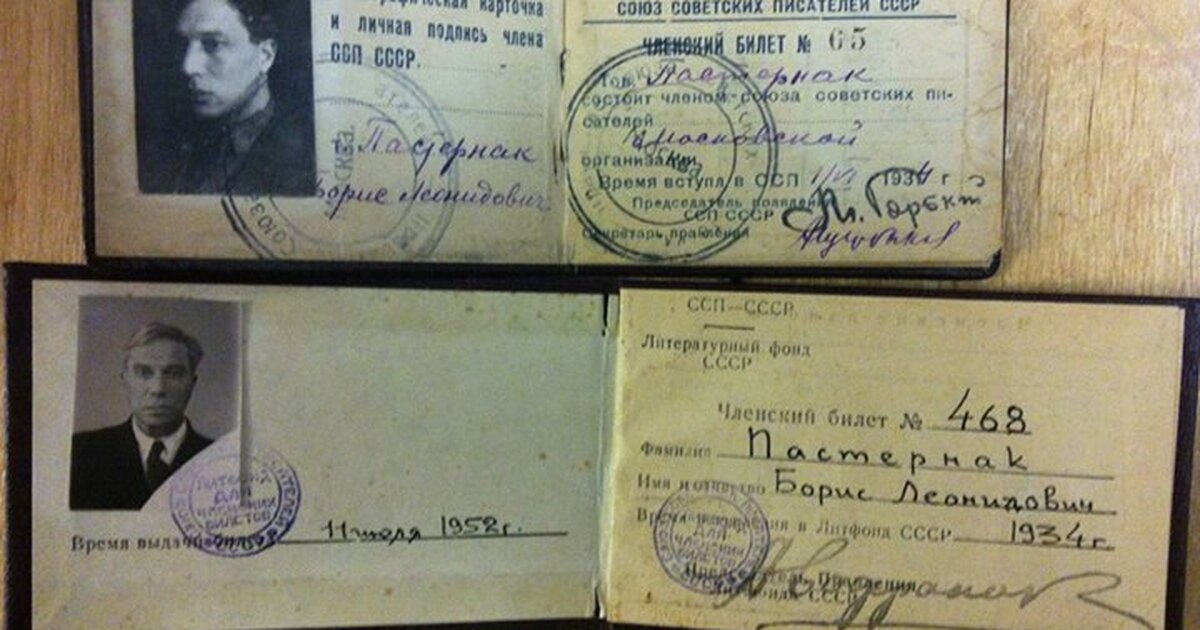 карточка
и личная подпись члена
ССП СССР.
Пастернак
Борис Леонидович
СОЮЗ СОВЕТСКИХ ПИСАТЕЛЕЙ СССР
ЧЛЕНСКИЙ БИЛЕТ № 65
Тов. Пастернак
состоит членом союза советских пи-
сателей
московской
организации
Время вступл. в ССП 1934 г
Председатель правления
ССП СССР М. Горький
Секретарь правления
Время выдачи билета 11 июля 1952 г.
ССП—СССР
Литературный фонд
СССР
Членский билет № 468
Фамилия Пастернак
Имя и отчество Борис Леонидович
Время вступления в Литфонд СССР 1934 г.
Председатель Правления
Литфонда СССР
для
членских
билетов